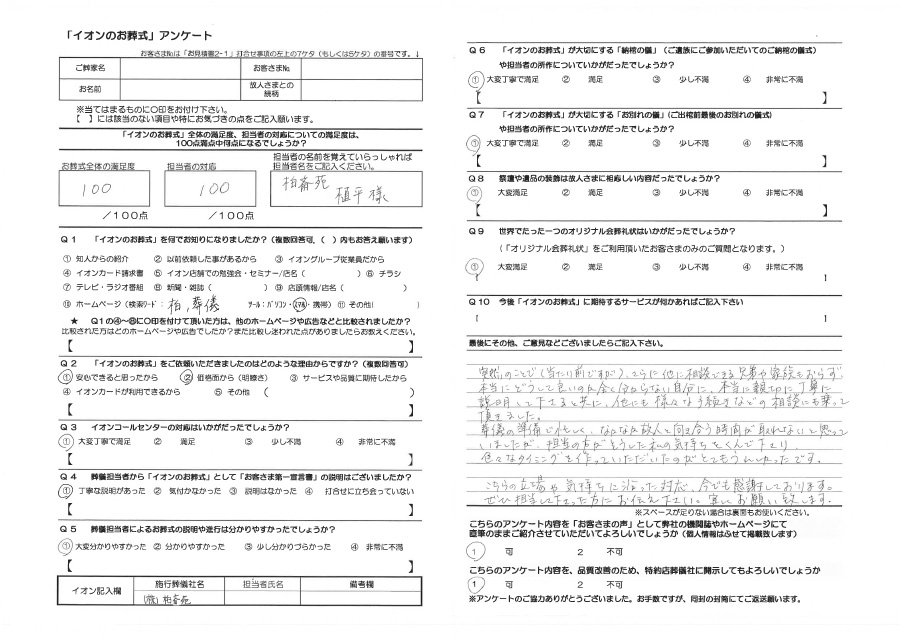 「イオンのお葬式」アンケート
お客さま№は「お見積書2-1」打合せ事項の左上の7ケタ(もしくは5ケタ)の番号です。↓
ご葬家名 お客さま№
お名前 故人さまとの続柄
※当てはまるものに○印をお付け下さい。
【 】には該当のない項目や特にお気づきの点をご記入願います。
「イオンのお葬式」全体の満足度、担当者の対応についての満足度は、
100点満点中何点になるでしょうか?
お葬式全体の満足度 担当者の対応 担当者の名前を覚えていらっしゃれば
担当者名をご記入ください。
100 100 柏斎苑
植平様
/100点 /100点
Q1 「イオンのお葬式」を何でお知りになりましたか?(複数回答可、( )内もお答え願います)
① 知人からの紹介 ② 以前依頼した事があるから ③ イオングループ従業員だから
④ イオンカード請求書 ⑤ イオン店舗での勉強会・セミナー/店名( ) ⑥ チラシ
⑦ テレビ・ラジオ番組 ⑧ 新聞・雑誌( ) ⑨ 店頭情報/店名( )
⑩ ホームページ(検索ワード: 柏、葬儀 ツール:パソコン・スマホ・携帯) ⑪ その他( )
★ Q1の④~⑩に○印を付けて頂いた方は、他のホームページや広告などと比較されましたか?
比較された方はどのホームページや広告でしたか?また比較し迷われた点がありましたらお教えください。
【 】
Q2 「イオンのお葬式」をご依頼いただきましたのはどのような理由からですか?(複数回答可)
① 安心できると思ったから ② 価格面から(明瞭さ) ③ サービスや品質に期待したから
④ イオンカードが利用できるから ⑤ その他 ( )
【 】
Q3 イオンコールセンターの対応はいかがだったでしょうか?
① 大変丁寧で満足 ② 満足 ③ 少し不満 ④ 非常に不満
【 】
Q4 葬儀担当者から「イオンのお葬式」として「お客さま第一宣言書」の説明はございましたか?
① 丁寧な説明があった ② 気付かなかった ③ 説明はなかった ④ 打合せに立ち会っていない
【 】
Q5 葬儀担当者によるお葬式の説明や進行は分かりやすかったでしょうか?
① 大変分かりやすかった ② 分かりやすかった ③ 少し分りづらかった ④ 非常に不満
【 】
イオン記入欄 施行葬儀社名 担当者氏名 備考欄
(株)柏斎苑
Q6 「イオンのお葬式」が大切にする「納棺の儀」(ご遺族にご参加いただいてのご納棺の儀式)
や担当者の所作についていかがだったでしょうか?
① 大変丁寧で満足 ② 満足 ③ 少し不満 ④ 非常に不満
【 】
Q7 「イオンのお葬式」が大切にする「お別れの儀」(ご出棺前最後のお別れの儀式)
や担当者の所作についていかがだったでしょうか?
① 大変丁寧で満足 ② 満足 ③ 少し不満 ④ 非常に不満
【 】
Q8 祭壇や遺品の装飾は故人さまに相応しい内容だったでしょうか?
① 大変満足 ② 満足 ③ 少し不満 ④ 非常に不満
【 】
Q9 世界でたった一つのオリジナル会葬礼状はいかがだったでしょうか?
(「オリジナル会葬礼状」をご利用頂いたお客さまのみのご質問となります。)
① 大変満足 ② 満足 ③ 少し不満 ④ 非常に不満
【 】
Q10 今後「イオンのお葬式」に期待するサービスが何かあればご記入下さい
【 】
最後にその他、ご意見などございましたらご記入下さい。
突然のことで(当たり前ですが)、さらに他に相談できる兄弟や家族もおらず
本当にどうして良いのか全く分からない自分に、本当に親切に丁寧に
説明して下さると共に、他にも様々な手続きなどの相談にも乗って
頂きました。
葬儀の準備で忙しく、なかなか故人と向き合う時間が取れないと思って
いましたが、担当の方がそうした私の気持ちをくんで下さり
色々なタイミングを作っていただいたのがとてもうれしかったです。
こちらの立場や気持ちに沿った対応、今でも感謝しております。
ぜひ担当して下さった方にお伝え下さい。宜しくお願い致します。
※スペースが足りない場合は裏面もお使いください。
こちらのアンケート内容を「お客さまの声」として弊社の機関誌やホームページにて
直筆のままご紹介させていただいてよろしいでしょうか(個人情報はふせて掲載致します)
1 可 2 不可
こちらのアンケート内容を、品質改善のため、特約店葬儀社に開示してもよろしいでしょうか
1 可 2 不可
※アンケートのご協力ありがとうございました。お手数ですが、同封の封筒にてご返送願います。